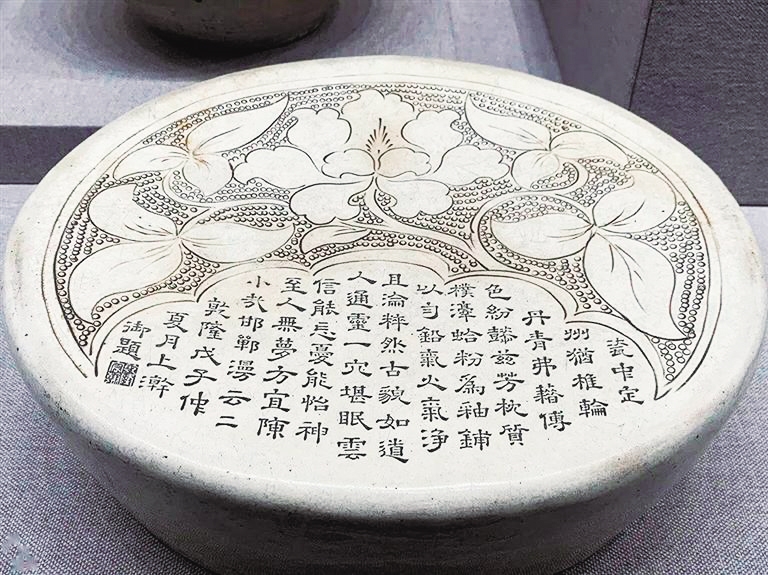 瓷中定
州猶椎輪
丹青弗藉傅
色紛懿茲芳枕質
樸渾蛤粉為釉鋪
以勻鉛氣火氣淨
且淪粹然古貌如道
人通靈一穴堪眠雲
信能忘憂能怡神
至人無夢方宜陳
小哉邯鄲漫云二
乾隆戊子仲
夏月上澣
御題